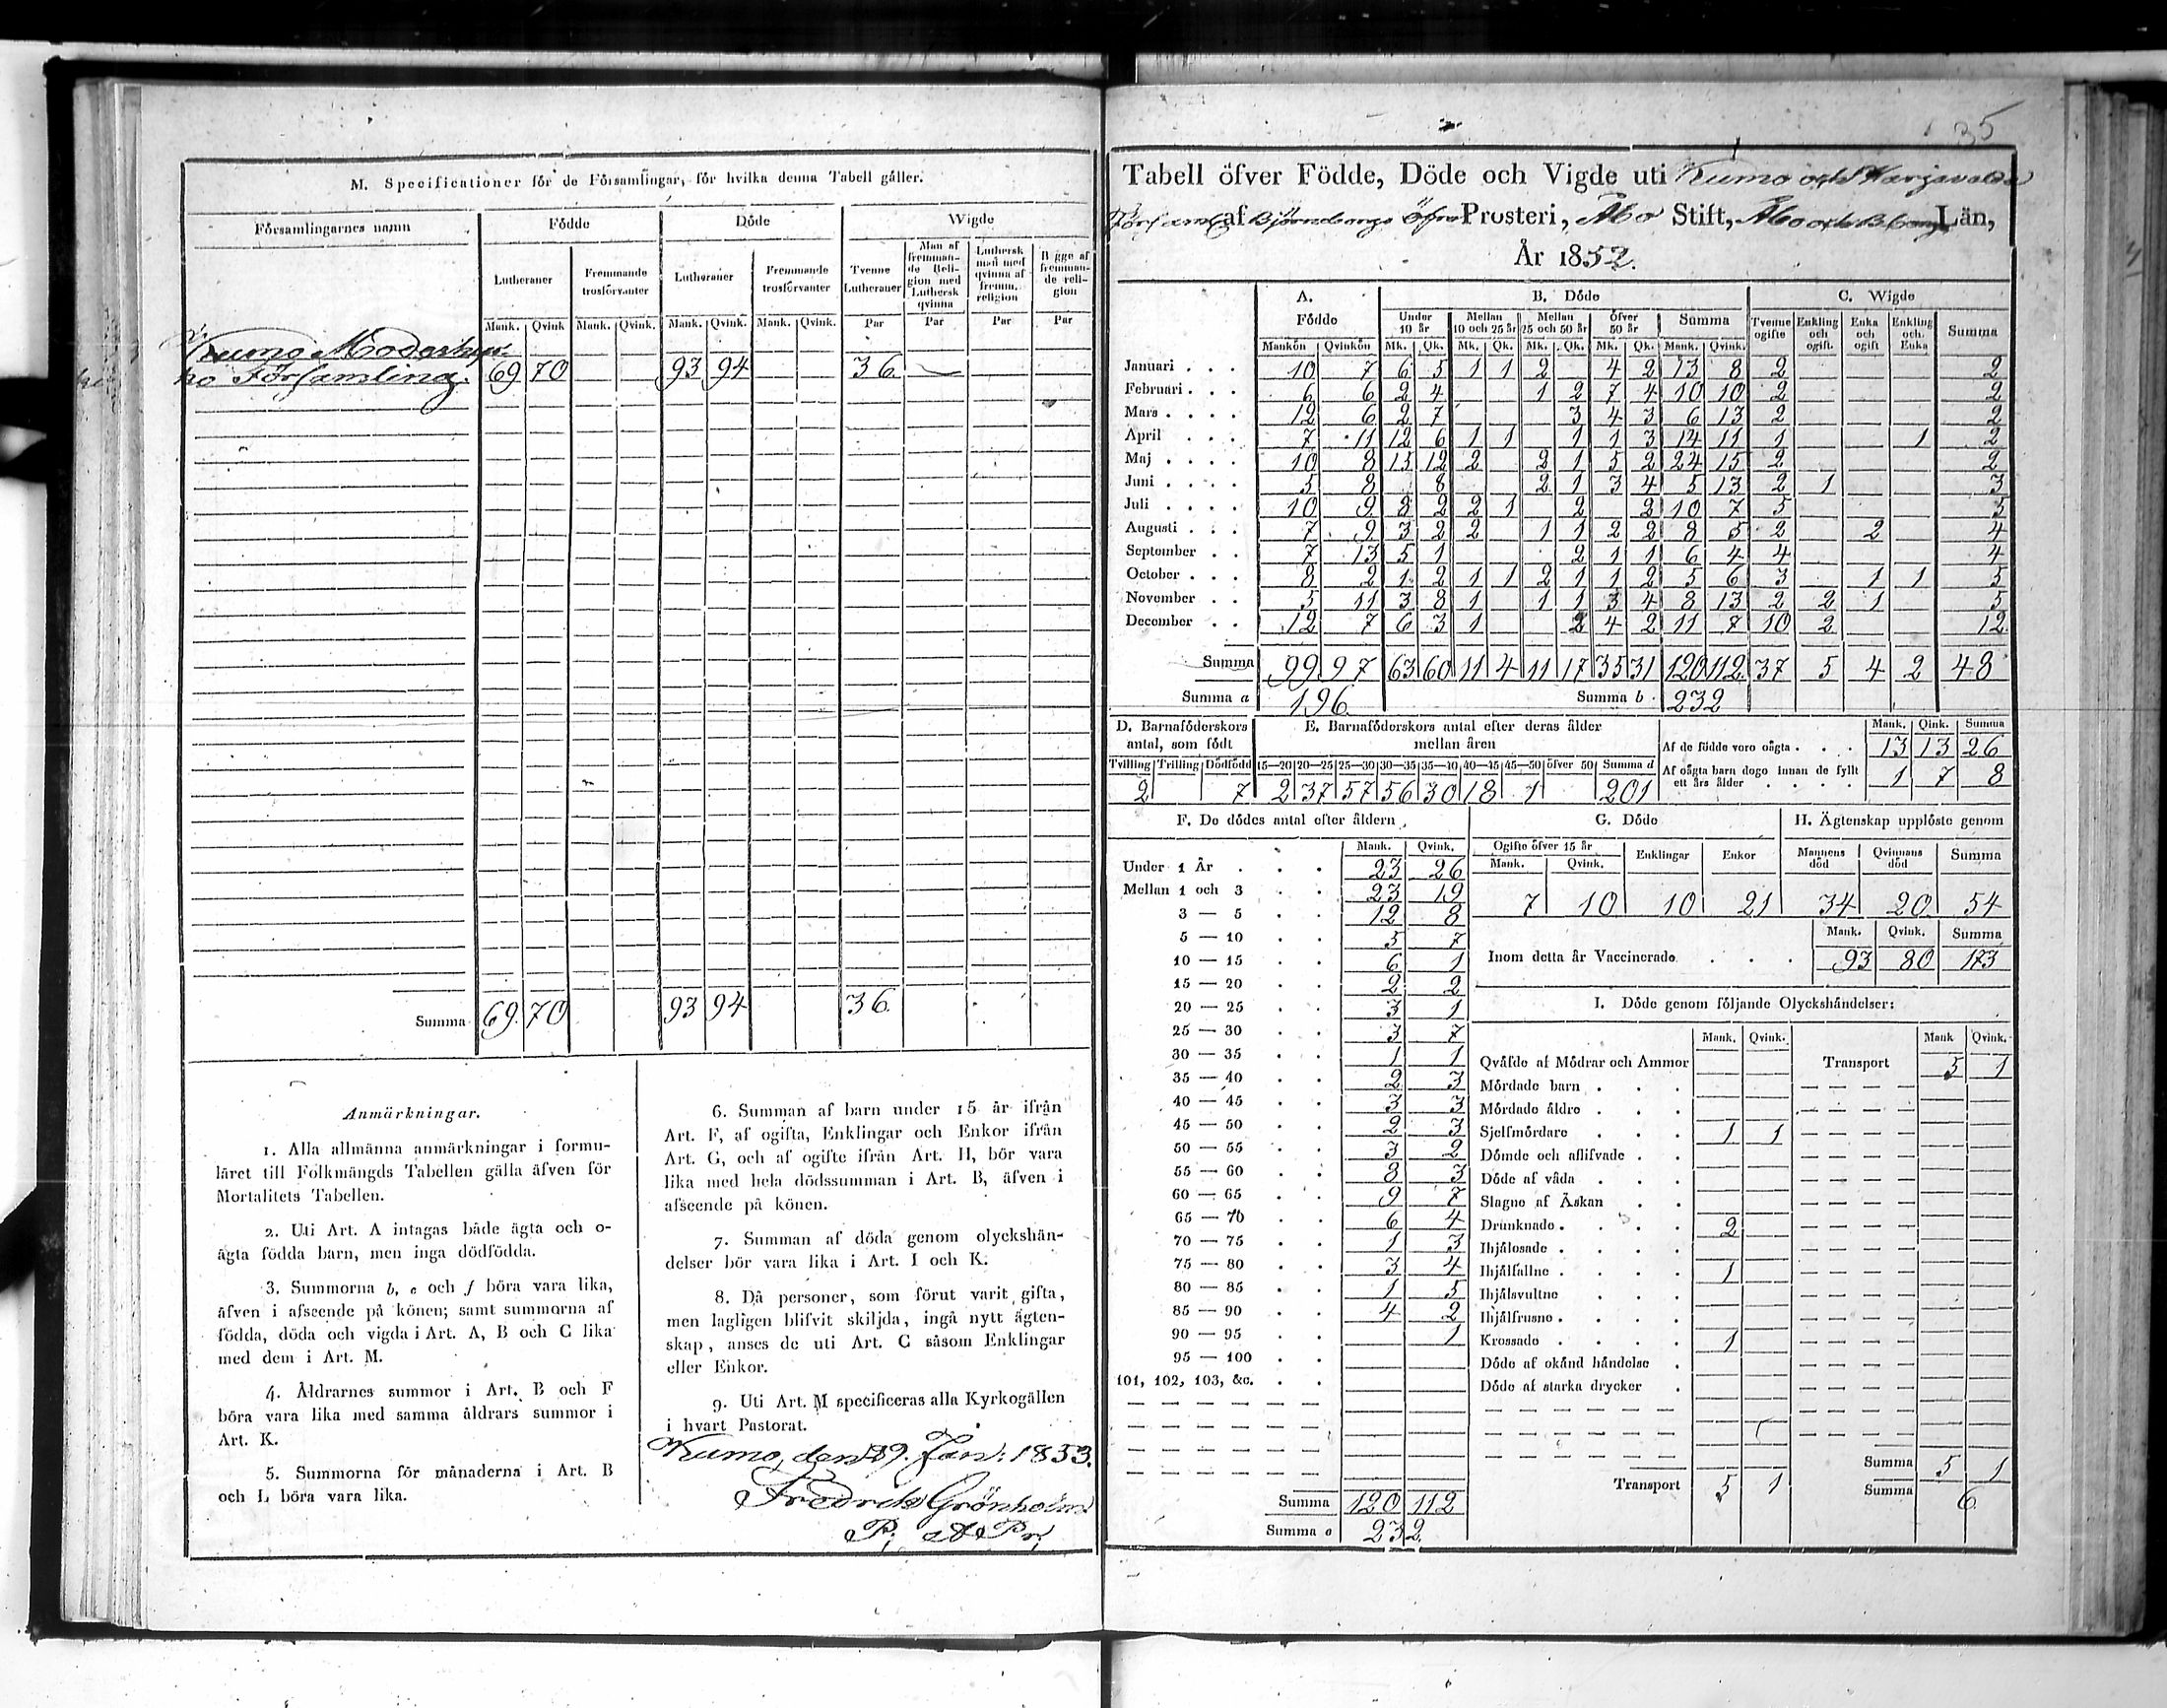 M. Specificationer för de Församlingar, för hvilka denna Tabell gäller.
Församlingarnes namn Födde Döde Wigde
Lutheraner Fremmande trosförvanter Lutheraner Fremmande trosförvanter Tvenne Lutheraner Man af fremmande Religion med Luthersk qvinna Luthersk man med qvinna af fremm. religion Bägge af fremmande religion
Mank. Qvink Mank. Qvink. Mank. Qvink. Mank. Qvink. Par Par Par Par
Kumo Moderkyr-
ko Församling. 69 70 93 94 36
Summa 69. 70 93 94 36
Anmärkningar.
1. Alla allmänna anmärkningar i formu-
läret till Folkmängds Tabellen gälla äfven för
Mortalitets Tabellen.
2. Uti Art. A intagas både ägta och o-
ägta födda barn, men inga dödfödda.
3. Summorna b, e och f böra vara lika,
äfven i afseende på könen; samt summorna af
födda, döda och vigda i Art. A, B och C lika
med dem i Art. M.
4. Åldrarnes summor i Art. B och F
böra vara lika med samma åldrars summor i
Art. K.
5. Summorna för månaderna i Art. B
och L böra vara lika.
6. Summan af barn under 15 år ifrån
Art. F, af ogifta, Enklingar och Enkor ifrån
Art. G, och af ogifte ifrån Art. H, bör vara
lika med hela dödssumman i Art. B, äfven i
afseende på könen.
7. Summan af döda genom olyckshän-
delser bör vara lika i Art. I och K.
8. Då personer, som förut varit gifta,
men lagligen blifvit skiljda, ingå nytt ägten-
skap, anses de uti Art. C såsom Enklingar
eller Enkor.
9. Uti Art. M specificeras alla Kyrkogällen
i hvart Pastorat.
Kumo, den 29. Jan: 1853.
Fredrik Grönholm
P; A Pr;
35
Tabell öfver Födde, Döde och Vigde uti Kumo och Harjavalda
Församl af Björneborgs Öfre Prosteri, Åbo Stift, Åbo och Bborgs Län,
År 1852.
A. Födde B. Döde C. Wigde
Under 10 år Mellan 10 och 25 år Mellan 25 och 50 år Öfver 50 år Summa Tvenne ogifte Enkling och ogift. Enka och ogift Enkling och Enka Summa
Mankön Qvinkön Mk. Qk. Mk. Qk. Mk. Qk. Mk. Qk. Mank. Qvink.
Januari . . . 10 7 6 5 1 1 2 4 2 13 8 2 2
Februari . . . 6 6 2 4 1 2 7 4 10 10 2 2
Mars . . . . 12 6 2 7 3 4 3 6 13 2 2
April . . . 7 11 12 6 1 1 1 1 3 14 11 1 1 2
Maj . . . . 10 8 15 12 2 2 1 5 2 24 15 2 2
Juni . . . . 5 8 8 2 1 3 4 5 13 2 1 3
Juli . . . . 10 9 8 2 2 1 2 2 10 7 5 5
Augusti . . . 7 9 3 2 2 1 1 2 2 8 5 2 2 4
September . . 7 13 5 1 2 1 1 6 4 4 4
October . . . 8 2 1 2 1 1 2 1 1 2 5 6 3 1 1 5
November . . 5 11 3 8 1 1 1 3 4 8 13 2 2 1 5
December . . 12 7 6 3 1 2 4 2 11 7 10 2 12
Summa 99 97 63 60 11 4 11 17 35 31 120 112 37 5 4 2 48
Summa a 196 Summa b 232
D. Barnaföderskors antal, som födt E. Barnaföderskors antal efter deras ålder mellan åren Mank. Qink. Summa
Af de födde voro oägta . . . 13 13 26
Tvilling Trilling Dödfödd 15—20 20—25 25—30 30—35 35—40 40—45 45—50 öfver 50 Summa d
Af oägta barn dogo innan de fyllt
ett års ålder . . . . 1 7 8
2 7 2 37 57 56 30 18 1 201
F. De dödes antal efter åldern
Mank. Qvink.
Under 1 År . . . 23 26
Mellan 1 och 3 . . 23 19
3 — 5 . . 12 8
5 — 10 . . 5 7
10 — 15 . . 6 1
15 — 20 . . 2 2
20 — 25 . . 3 1
25 — 30 . . 3 7
30 — 35 . . 1 1
35 — 40 . . 2 3
40 — 45 . . 3 3
45 — 50 . . 2 3
50 — 55 . . 3 2
55 — 60 . . 8 3
60 — 65 . . 9 7
65 — 70 . . 6 4
70 — 75 . . 1 3
75 — 80 . . 3 4
80 — 85 . . 1 5
85 — 90 . . 4 2
90 — 95 . . 1
95 — 100 . .
101, 102, 103, &c. . .
Summa 120 112
Summa e 232
G. Döde H. Ägtenskap upplöste genom
Ogifte öfver 15 år Enklingar Enkor Mannens död Qvinnans död Summa
Mank. Qvink.
7 10 10 21 34 20 54
Mank. Qvink. Summa
Inom detta år Vaccinerade . . . 93 80 173
I. Döde genom följande Olyckshändelser:
Mank. Qvink. Mank Qvink.
Qväfde af Mödrar och Ammor Transport 5 1
Mördade barn . . .
Mördade äldre . . .
Sjelfmördare . . 1 1
Dömde och aflifvade . .
Döde af våda . . .
Slagne af Åskan . .
Drunknade . . . . 2
Ihjälosade . . . .
Ihjälfallne . . . . 1
Ihjälsvultne . . .
Ihjälfrusne . . . .
Krossade . . . . 1
Döde af okänd händelse .
Döde af starka drycker .
Summa 5 1
Transport 5 1 Summa 6